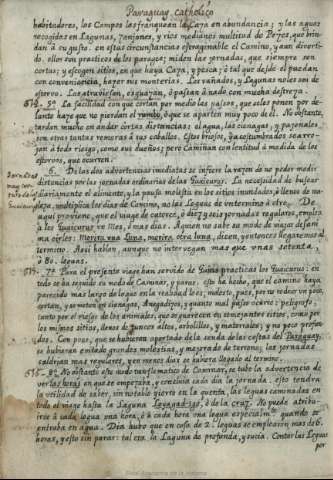 Paraguay Catholico
habitadores, los Campos les franquean la Caza en abundancia; y las aguas
recogidas en Lagunas, zanjones, y rios medianos multitud de Pezes, que brin-
dan à su gusto. en estas circunstancias es fraginable el Camino, y aun diverti-
do. ellos son practicos de los parages; miden las jornadas, que siempre son
cortas; y escogen sitios, en que haya Caza, y pesca; ò tal que desde el puedan
con conveniencia, hazer sus monterias. Los vañados, y Lagunas no les son de
estorvo. Las atraviesan, esguazan, ò pasan à nado con mucha destreza.
614. 5ª La facilidad con que cortan por medio los pasos, que se les ponen por de-
lante haze que no pierdan el rumbo, ò que se aparten muy poco de el. No obstante,
tardan mucho en andar cortas distancias: el agua, las cienagas, y pajonales
son otras tantas remoras à sus caballos. Estos briosos, y acostumbrados se arro-
jan à todo riesgo, como sus dueños; pero Caminan con lentitud à medida de los
estorvos, que ocurren.
6. De las dos advertencias imediatas se infiere la razon de no poder medir
distancias por las jornadas ordinarias de los Guaicurus. La necesidad de buscar
diariamente el alimento, y la pausa molesta en los sitios inundados, ò llenos de ma-
leza, multiplica los dias de Camino, no las Leguas de un termino à otro. De
aqui proviene, que el viage de catorce, ò diez y seis jornadas regulares, emplea
à los Guaicurus un Mes, ò mas dias. Alguien no sabe su modo de viajar desma-
ya al oirles: Morirà una Luna, morirà otra luna, dicen, y entonces llegaremos al
termino. Assi hablan, aunque no intervengan mas que unas setenta,
ò 80. leguas.
615. 7ª Para el presente viage han servido de Guias practicos los Guaicurus: en
todo se ha seguido su modo de Caminar, y parar. esto ha hecho, que el camino haya
parecido mas largo de lo que en la realidad lo es; molesto, pues, por no rodear un poco,
cortan, y se meten por cienagas, Anegadizos, y quanto mal paso ocurre: peligroso,
tanto por el riesgo de los animales, que se guarecen en semejantes sitios, como por
los mismos sitios, llenos de juncos altos, arbolillos, y matorrales; y no poco profun-
dos. Con poco, que se hubieran apartado de la senda de las costas del Paraguay,
se hubieran evitado grandes molestias, y mejorado de terreno; las jornadas
saldrian mas regulares, y en menos dias se hubiera llegado al termino.
616. 8ª No obstante este modo tan flematico de Caminar, se tubo la advertencia de
ver las horas en que se empezaba, y concluia cada dia la jornada. esto tendra
la utilidad de saber, sin notable yerro en la quenta, las leguas caminadas en
todo el viage hasta la Laguna
irse à cada legua una hora, ò à cada hora una legua, especialmte quando se
entraba en agua. Dia hubo que en cosa de 2. leguas se emplearon mas de 6.
horas, y esto sin parar: tal era la Laguna de profunda, y sucia. Contar las Leguas
por
Real Academia de la Historia